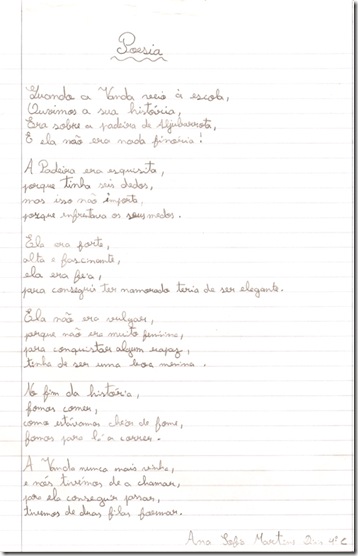 Poesia
Quando a Vanda veio à escola,
Ouvimos a sua história,
Era sobre a padeira de Aljubarrota,
E ela não era nada finória!
A Padeira era esquisita,
porque tinha seis dedos,
mas isso não importa,
porque enfrentava os seus medos.
Ela era forte,
alta e fascinante,
ela era feia,
para conseguir ter namorado teria de ser elegante.
Ela não era vulgar,
porque não era muito feminina,
para conquistar algum rapaz,
tinha de ser uma boa menina.
No fim da história,
fomos comer,
como estávamos cheios de fome,
fomos para lá a correr.
A Vanda nunca mais vinha,
e nós tivemos de a chamar,
para ela conseguir passar,
tivemos de duas filas formar.
Ana Sofia Martins 4º C